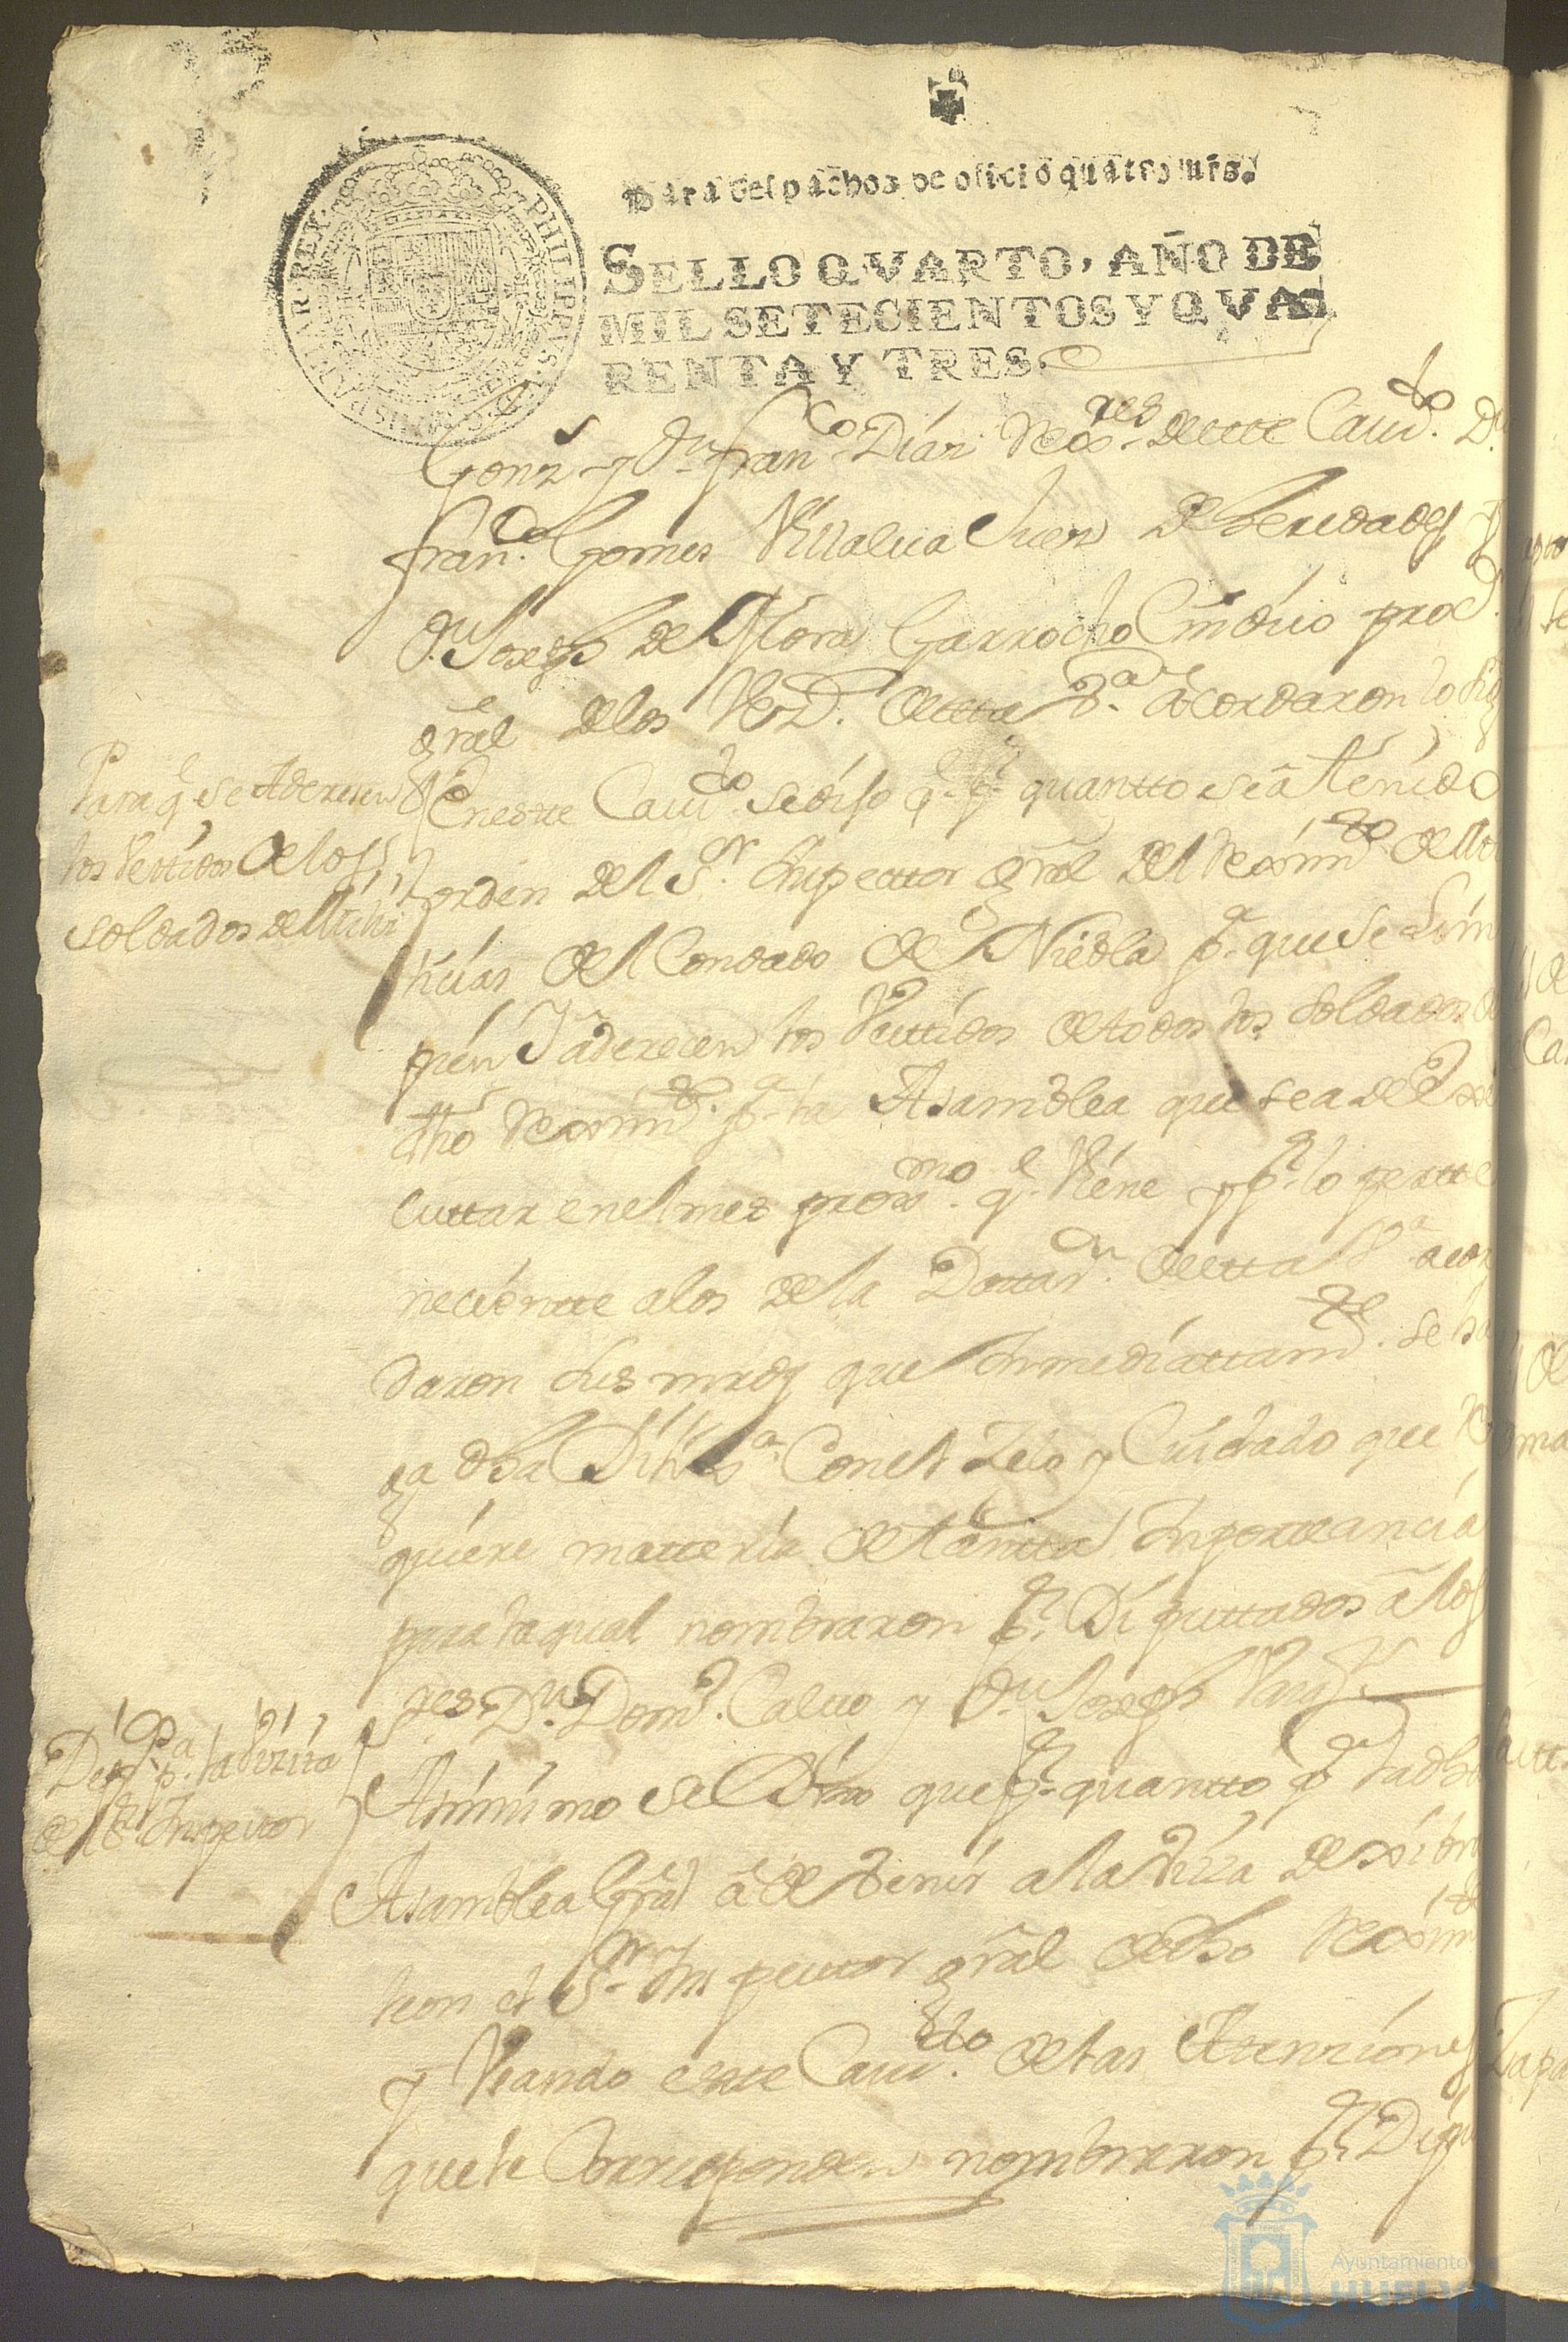 Para despachos de oficio quatro mrs.
SELLO QVARTO, AÑO DE
MIL SETECIENTOS Y QVA
RENTA Y TRES.
PHILIPPUS V D G HISPANIAR REX
Gonz y Dn Franco Díaz Rexres deste Cavdo. Dn
Franco Gomez Villalva Juez de heredades y
Dn Joseph de Mora Garrocho Sindico procr
gral de los Vezos desta Va acordaron lo sig
Para q se Aderezen
los Vestidos de los
soldados de Mili
En este Cavdo se dijo q pr quantto se a tenido
orden del Sr Inspecttor gral del Reximto de Mi
licias del Condado de Niebla pa que se Lim
pien Y aderezen los Vesttidos de todos los soldados de
dho Reximto pa la Asamblea que sea de Exe
cuttar en el mes proxmo q Viene y pr lo pertte
necientte a los de la Dottan desta Va acor
daron sus mrds que Inmediattamte se ha
ga dha Dilixa Con el Zelo y Cuidado que Re
quiere matteria de tantta Importtancia
para la qual nombraron pr Diputtados a los
res Dn Domo Calvo y Dn Joseph
Dip pa la Vizita
del Sr Inspector
Asimismo se Dixo que pr quantto pa la dha
Asamblea Gral a de Venir a la Villa de xibra
leon el Sr Inspecttor gral de dho Reximto
y Vsando este Cavdo de las Attenziones
que le Corresponden nombraron pr Dipu
Ayuntamiento de
HUELVA